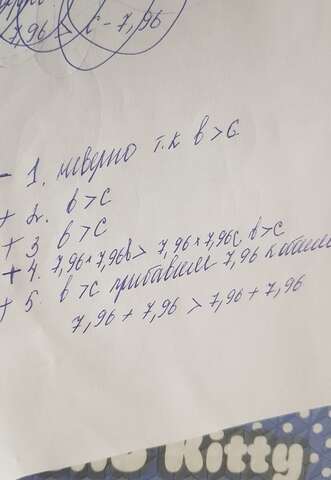 7,96 > c - 7,96
- 1. неверно т.к b>c.
+ 2. b>c
+ 3. b>c
+ 4. 7,96×7,96b > 7,96×7,96c b>c
+ 5. b>c прибавим 7,96 к обеим
7,96 + 7,96 > 7,96 + 7,96
Kitty